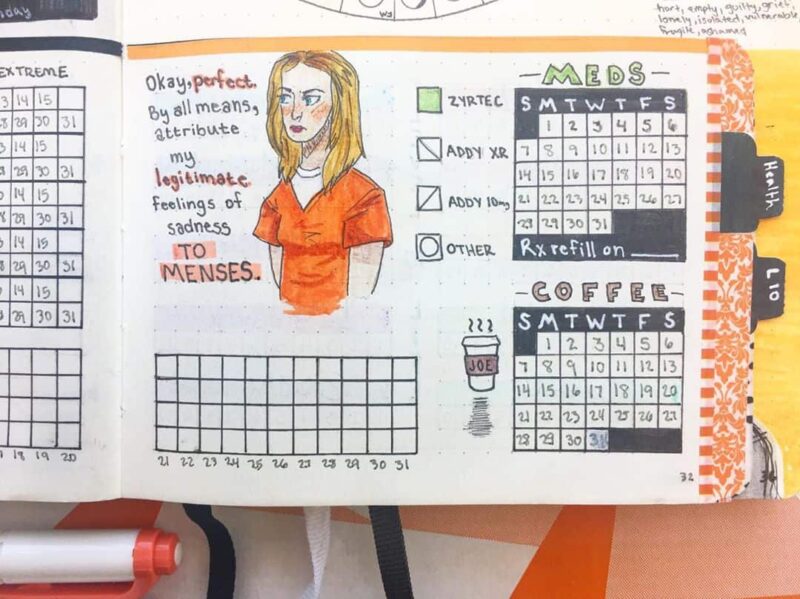 EXTREME
14 15
29 30 31
14 15
29 30 31
14 15
29 30 31
14 15
29 30 31
14 15
29 30 31
18 19 20
hurt, empty, guilty, grief,
lonely, isolated, vulnerable,
fragile, ashamed
Okay, perfect.
By all means,
attribute
my
legitimate
feelings of
sadness
TO
MENSES.
ZYRTEC
ADDY XR
ADDY 10mg
OTHER
-MEDS-
S M T W T F S
1 2 3 4 5 6
7 8 9 10 11 12 13
14 15 16 17 18 19 20
21 22 23 24 25 26 27
28 29 30 31
Rx refill on ____
-COFFEE-
S M T W T F S
1 2 3 4 5 6
7 8 9 10 11 12 13
14 15 16 17 18 19 20
21 22 23 24 25 26 27
28 29 30 31
JOE
21 22 23 24 25 26 27 28 29 30 31
32
Health
L 10